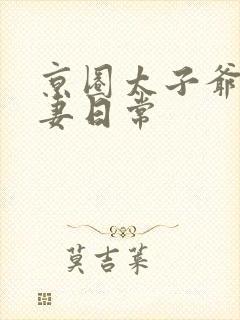 京圈太子爷
妻日常
莫吉菋